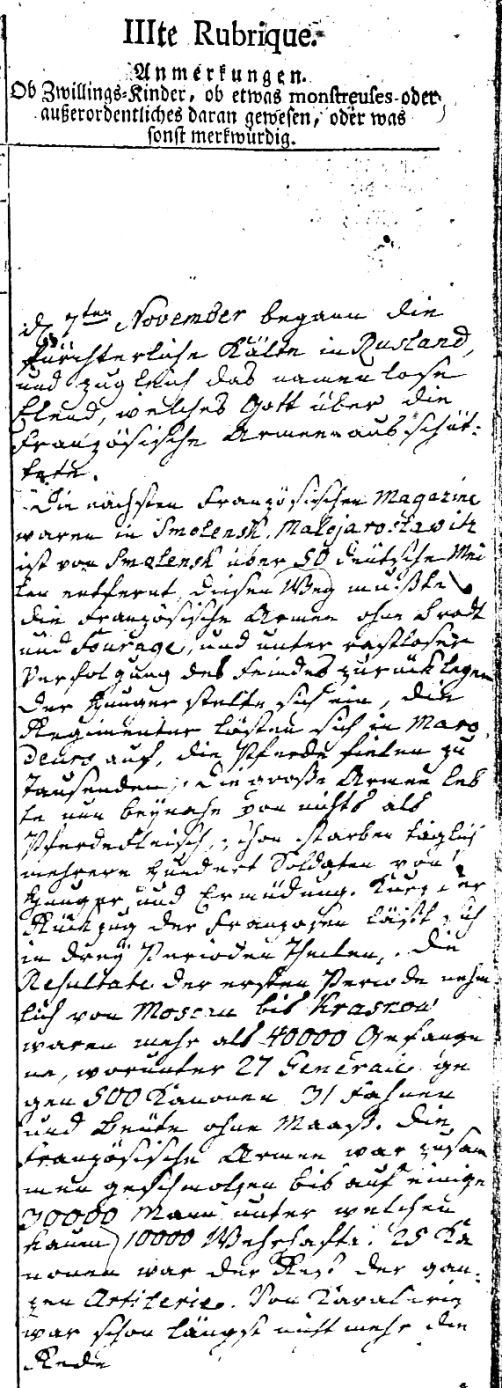 IIIte Rubrique.
Anmerkungen.
Ob Zwillings-Kinder, ob etwas monstreuses oder
außerordentliches daran gewesen, oder was
sonst merkwürdig.
d. 7ten November begann die
fürchterliche Kälte in Rusland,
und zugleich das namenlose
Elend, welches Gott über die
Französische Armee ausschüt-
tete.
Die nächsten Französischen Magazine
waren in Smolensk, Malojaroslawitz
ist von Smolensk über 50 deutsche Mei
len entfernt, diesen Weg mußte
die Französische Armee ohne Brodt
und Fourage, und unter rastloser
Verfolgung des Feindes zurücklegen
Der Hunger stelte sich ein, die
Regimenter lösten sich in Maro
deurs auf, die Pferde fielen zu
Tausenden, die große Armee leb
te nun beynahe von nichts als
Pferdefleisch, schon starben täglich
mehrere Hundert Soldaten von
Hunger und Ermüdung. Kurz der
Rückzug der Franzosen läßt sich
in drey Perioden theilen, die
Resultate der ersten Periode nehm
lich von Moscau bis Krasnow
waren mehr als 40000 Gefange
ne, worunter 27 Generale ge
gen 500 Kanonen 31 Fahnen
und Beute ohne Maaß. Die
Französische Armee war zusam
men geschmolzen bis auf einige
30000 Mann unter welchen
kaum 10000 Wehrhafte. 25 Ka
nonen war der Rest der gan-
zen Artilerie. Von Kavalerie
war schon längst nicht mehr die
Rede